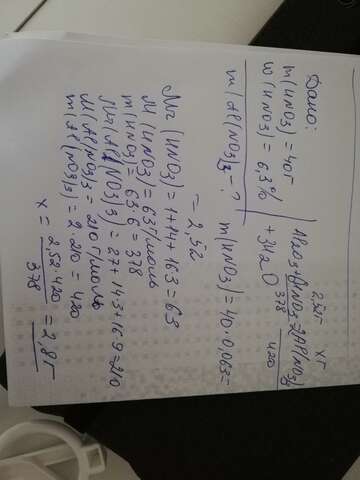 Дано:
m(HNO3) = 40г
w(HNO3) = 6,3%
m(Al(NO3)3 - ?
2,52г хг
Al2O3 + 6HNO3 = 2Al(NO3)3
+ 3H2O 378 420
m(HNO3) = 40·0,063 =
= 2,52
Mr (HNO3) = 1+14+16·3 = 63
M (HNO3) = 63г/моль
m(HNO3) = 63·6 = 378
Mr(Al(NO3)3 = 27+14·3+16·9 = 210
M(Al(NO3)3 = 210г/моль
m(Al(NO3)3) = 2·210 = 420
x = 2,52·420 = 2,8г
378